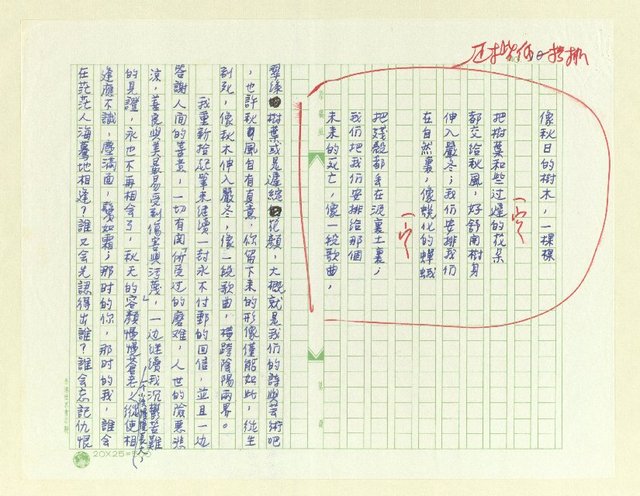 像秋日的樹木，一棵棵
把樹葉和些過遲的花朵
都交給秋風，好舒開樹身
伸入嚴冬；我們安排我們
在自然裏，像蛻化的蟬蛾
把殘殼都丟在泥裏土裏；
我們把我們安排給那個
未來的死亡，像一段歌曲，
翠綠樹葉或是濃艷花顏，大概就是我們的詩與藝術吧
，也許秋風自有真意，你留下來的形像僅能如此，從生
到死，像秋木伸入嚴冬，像一段歌曲，橫跨陰陽兩界。
我重新拾起筆來續寫一封永不付郵的回信，並且一邊
答謝人間的善意，一切有關你受過的磨難，人世的險惡悲
涼，善良與美最易受到傷害與污蔑，一邊繼續我沉鬱苦難
的見證，永也不再相會了，秋天的容顏慢慢蒼老，縱使相
逢應不識，塵滿面，鬢如霜；那時的你，那時的我，誰會
在茫茫人海驀地相逢？誰又會先認得出誰？誰會忘記仇恨
20X25=500